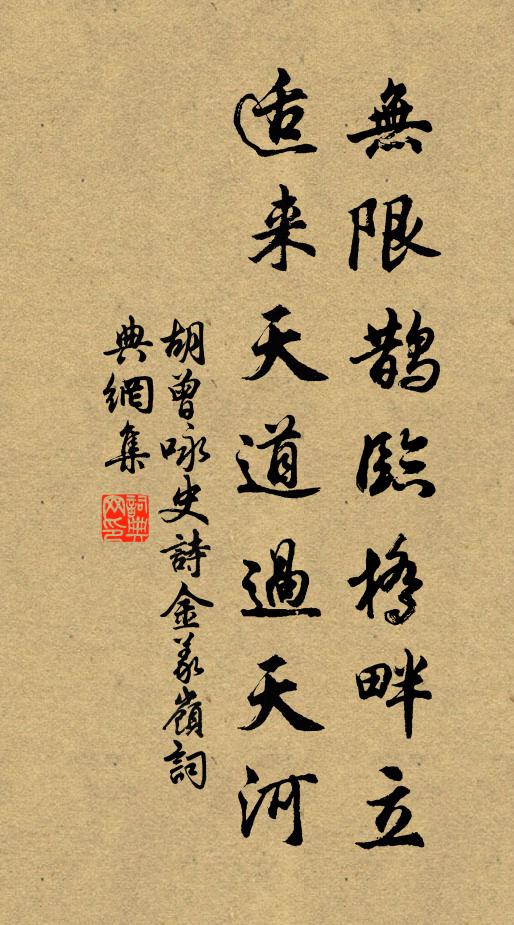 無限鵲臨橋畔立
適来天道過天河
胡曾咏史詩金義嶺詞
典網集
詞典网印